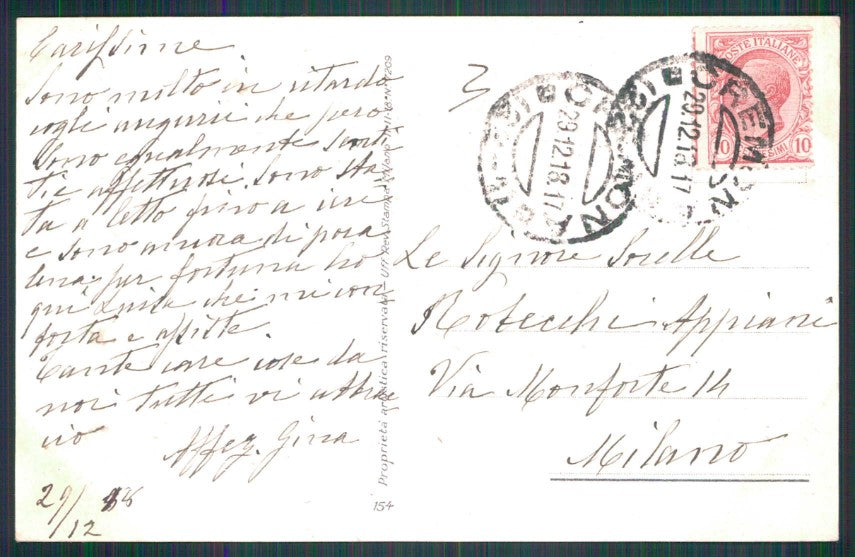 Carissime
Sono molto in ritardo
cogli augurii che però
sono egualmente senti-
ti e affettuosi. Sono sta-
ta a letto fino a ieri
e sono ancora di poca
lena. per fortuna ho
qui Luisa che mi con-
forta e assiste.
Tante care cose da
noi tutti vi abbrac-
cio
Affez. Gina
29/12
Proprietà artistica riservata - Uff. Rev. Stampa Milano
154
3
CREMONA
29.12.18.17
CREMONA
29.12.18.17
POSTE ITALIANE
10 10
Le Signore Sorelle
Rotecchi Appiani
Via Monforte 14
Milano